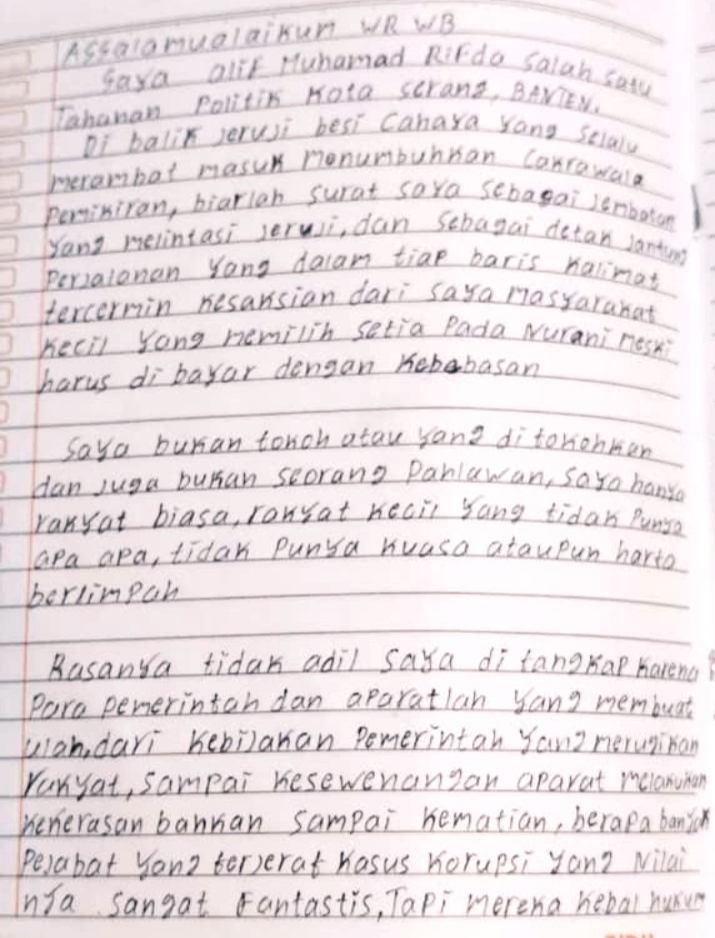 Assalamualaikum WR WB
Saya alif Muhamad Rifda salah satu
Tahanan Politik Kota serang, BANTEN.
Di balik jeruji besi Cahaya yang selalu
merambat masuk menumbuhkan Cakrawala
Pemikiran, biarlah surat saya sebagai jembatan
yang melintasi jeruji, dan sebagai detak jantung
Perjalanan yang dalam tiap baris kalimat
tercermin kesaksian dari saya masyarakat
kecil yang memilih setia Pada Nurani meski
harus di bayar dengan kebebasan
Saya bukan tokoh atau yang di tokohkan
dan juga bukan seorang Pahlawan, saya hanya
rakyat biasa, rakyat kecil yang tidak Punya
apa apa, tidak Punya kuasa ataupun harta
berlimpah
Rasanya tidak adil saya di tangkap karena
Para pemerintah dan aparatlah yang membuat
ulah, dari kebijakan Pemerintah yang merugikan
rakyat, sampai kesewenangan aparat melakukan
kekerasan bahkan sampai kematian, berapa banyak
Pejabat yang terjerat kasus korupsi yang Nilai
nya sangat Fantastis, Tapi mereka kebal hukum